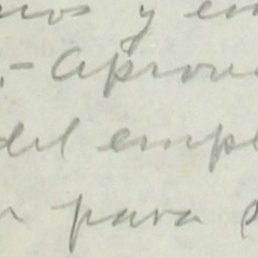 y en
- Aprove
del empl
para